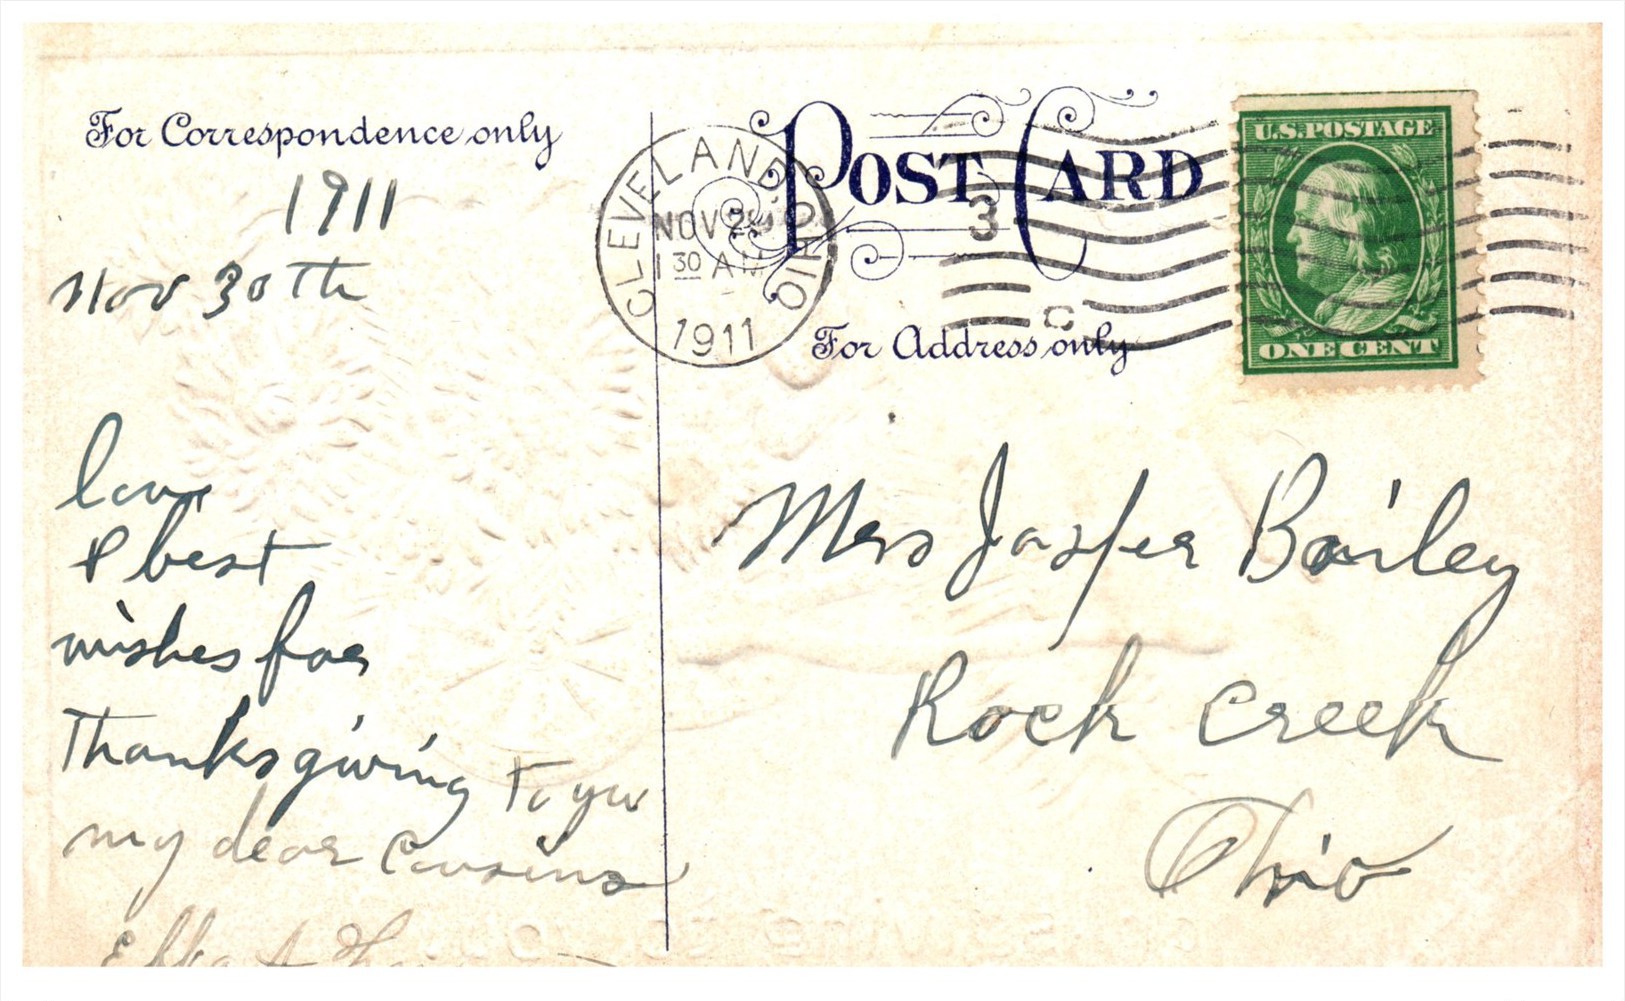 For Correspondence only
1911
Nov 30th
love
& best
wishes for
Thanksgiving to you
my dear cousins
POST CARD
CLEVELAND, OHIO
NOV
1 30 AM
1911
3
C
For Address only
U.S. POSTAGE
ONE CENT
Mrs Jasper Bailey
Rock Creek
Ohio